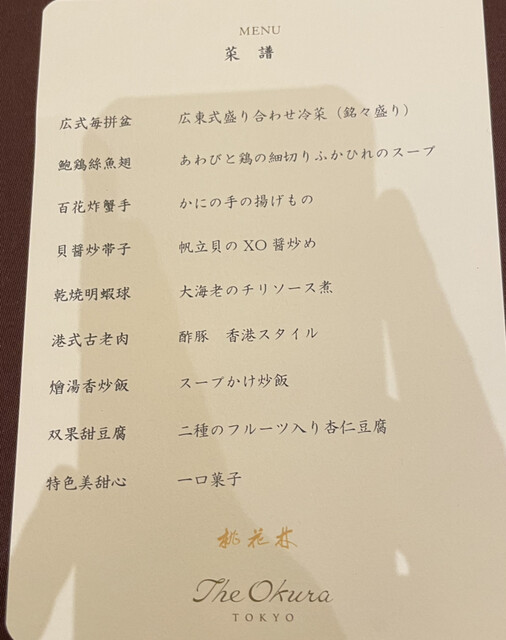 MENU
菜 譜
広式毎拼盆 広東式盛り合わせ冷菜（銘々盛り）
鮑鶏絲魚翅 あわびと鶏の細切りふかひれのスープ
百花炸蟹手 かにの手の揚げもの
貝醤炒帯子 帆立貝のXO醤炒め
乾焼明蝦球 大海老のチリソース煮
港式古老肉 酢豚 香港スタイル
燴湯香炒飯 スープかけ炒飯
双果甜豆腐 二種のフルーツ入り杏仁豆腐
特色美甜心 一口菓子
桃花林
The Okura
TOKYO